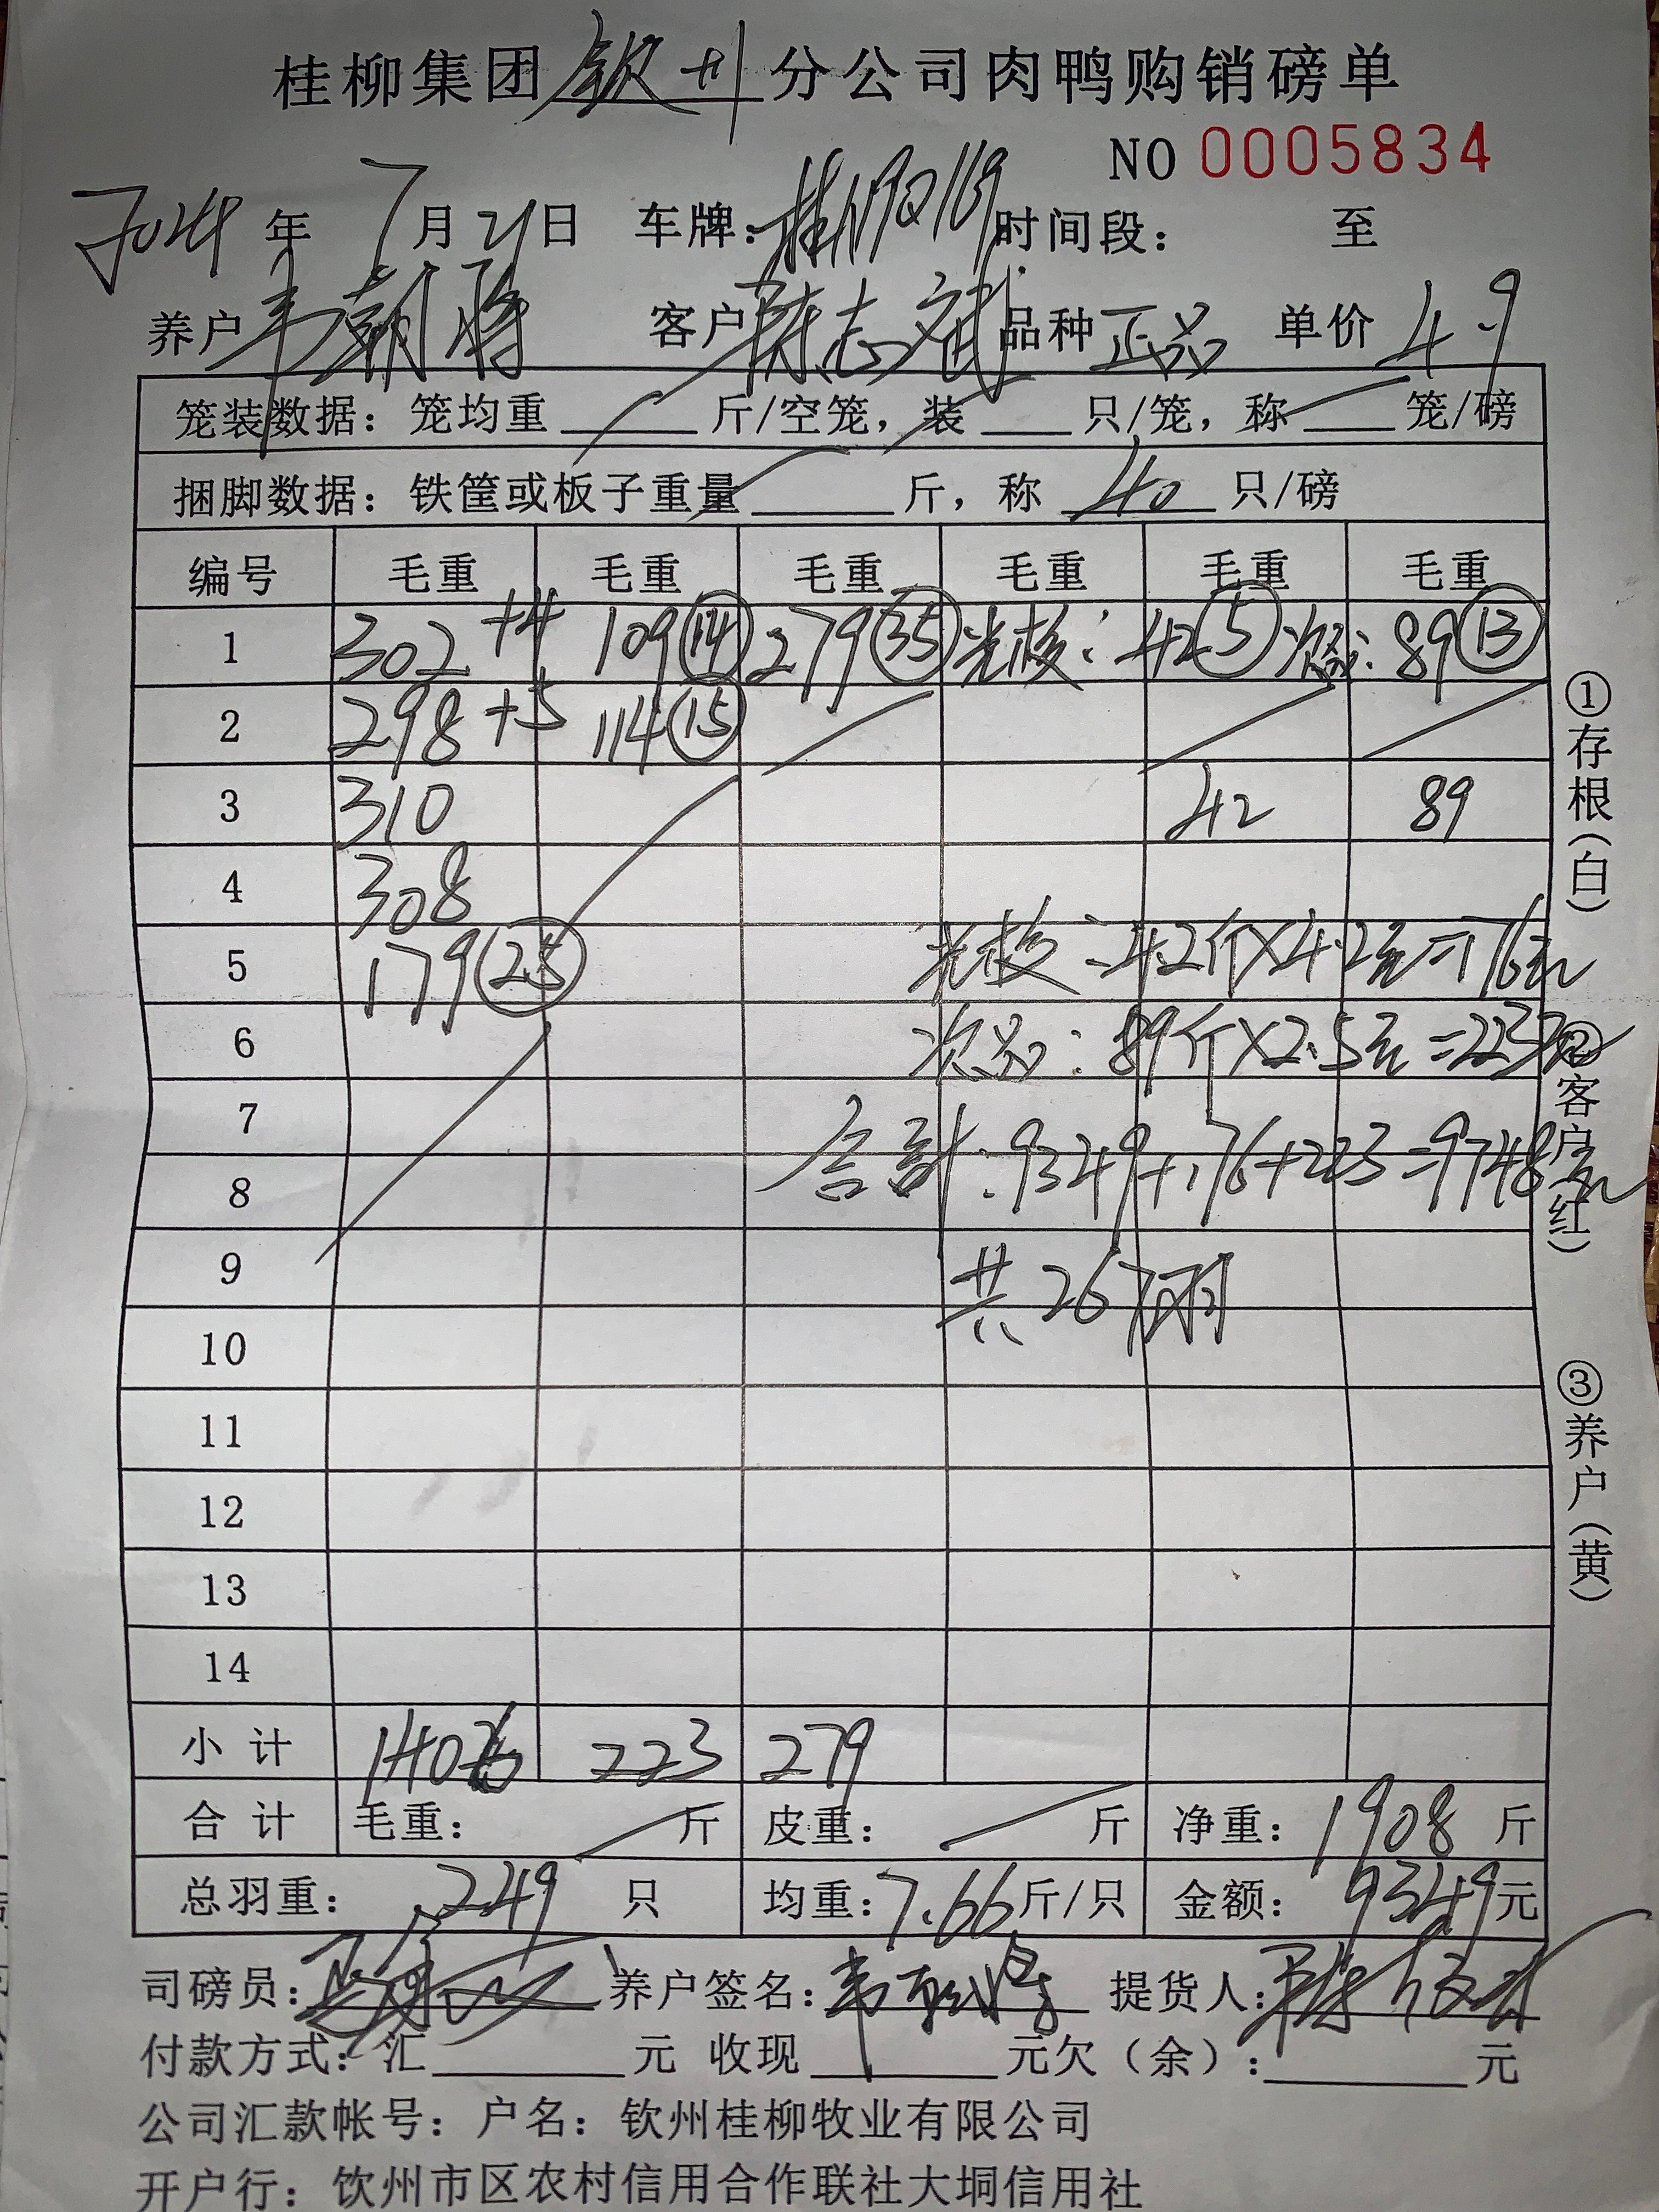 桂柳集团钦州分公司肉鸭购销磅单
NO 0005834
2024年7月21日 车牌：桂 时间段： 至
养户 韦朝 客户 陈志斌 品种 正品 单价 4.9
笼装数据：笼均重 斤/空笼，装 只/笼，称 笼/磅
捆脚数据：铁筐或板子重量 斤，称 40 只/磅
编号 毛重 毛重 毛重 毛重 毛重 毛重
1 302+4 109⑭ 279㉟ 光核：42⑤ 次品：89⑬
2 298+5 114⑮
3 310 42 89
4 308
5 179㉕ 光核：42斤×4.2元=176元
6 次品：89斤×2.5元=223元
7
8 合計：9349+176+223=9748元
9 共267羽
10
11
12
13
14
小计 1406 223 279
合计 毛重： 斤 皮重： 斤 净重：1908斤
总羽重：249只 均重：7.66斤/只 金额：9349元
司磅员： 养户签名：韦 提货人：
付款方式：汇 元 收现 元欠（余）： 元
公司汇款帐号：户名：钦州桂柳牧业有限公司
开户行：钦州市区农村信用合作联社大垌信用社
①存根（白）
②客户（红）
③养户（黄）